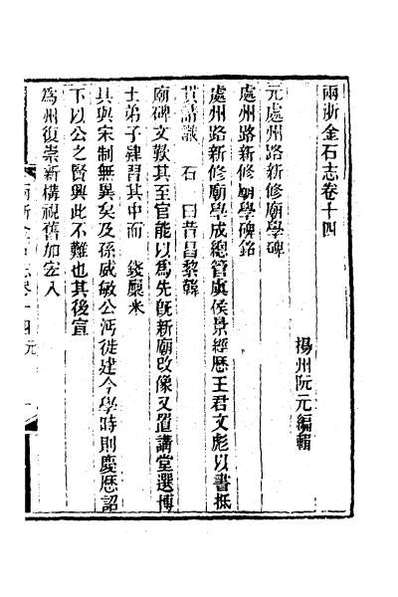 兩浙金石志卷十四
揚州阮元編輯
元處州路新修廟學碑
處州路新修廟學碑銘
處州路新修廟學成總管虞侯景經歷王君文彪以書抵
貢請識　石　曰昔昌黎韓
廟碑文歎其至官能以爲先旣新廟改像又置講堂選博
士弟子肄習其中而　錢廩米
具與宋制無異矣及孫威敏公沔徙建今學時則慶歷詔
下以公之賢興此不難也其後宣
爲州復崇新構視舊加宏入
兩浙金石志卷十四　元